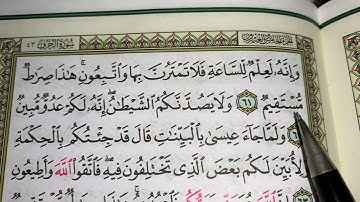 سورة الزخرف ٤٣
وَإِنَّهُ لَعِلْمٌ لِّلسَّاعَةِ فَلَا تَمْتَرُنَّ بِهَا وَٱتَّبِعُونِ ۚ هَٰذَا صِرَٰطٌ
مُّسْتَقِيمٌ ٦١ وَلَا يَصُدَّنَّكُمُ ٱلشَّيْطَٰنُ ۖ إِنَّهُ لَكُمْ عَدُوٌّ مُّبِينٌ
وَلَمَّا جَآءَ عِيسَىٰ بِٱلْبَيِّنَٰتِ قَالَ قَدْ جِئْتُكُم بِٱلْحِكْمَةِ
وَلِأُبَيِّنَ لَكُم بَعْضَ ٱلَّذِى تَخْتَلِفُونَ فِيهِ ۖ فَٱتَّقُوا۟ ٱللَّهَ وَأَطِيعُونِ